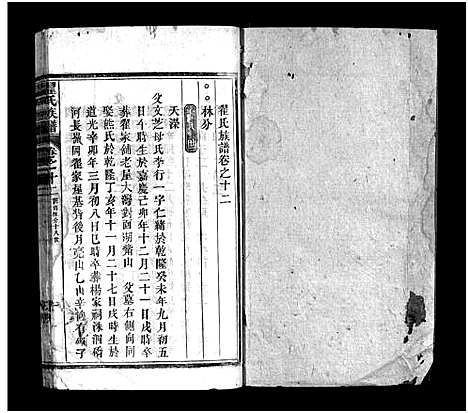 瞿氏族譜卷之十二
林分
天深
父文芝母氏李行一字仁緒於乾隆癸未年九月初五
日午時生於嘉慶己卯年十二月二十一日戌時卒
葬瞿家舖老屋大海對面湖嘴山 父墓右側向同
娶熊氏於乾隆丁亥年十一月二十七日戌時生於
道光辛卯年三月初八日巳時卒葬楊家祠洙泗橋
河長嶺岡瞿家屋基背後月亮山乙山辛向有
瞿氏族譜 卷之十二